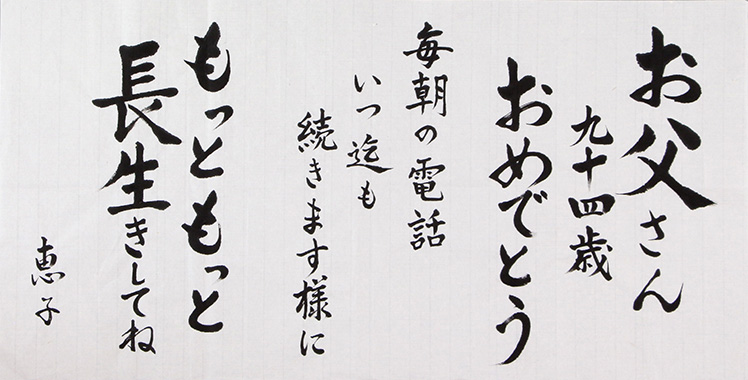 お父さん
九十四歳
おめでとう
毎朝の電話
いつ迄も
続きます様に
もっともっと
長生きしてね
恵子